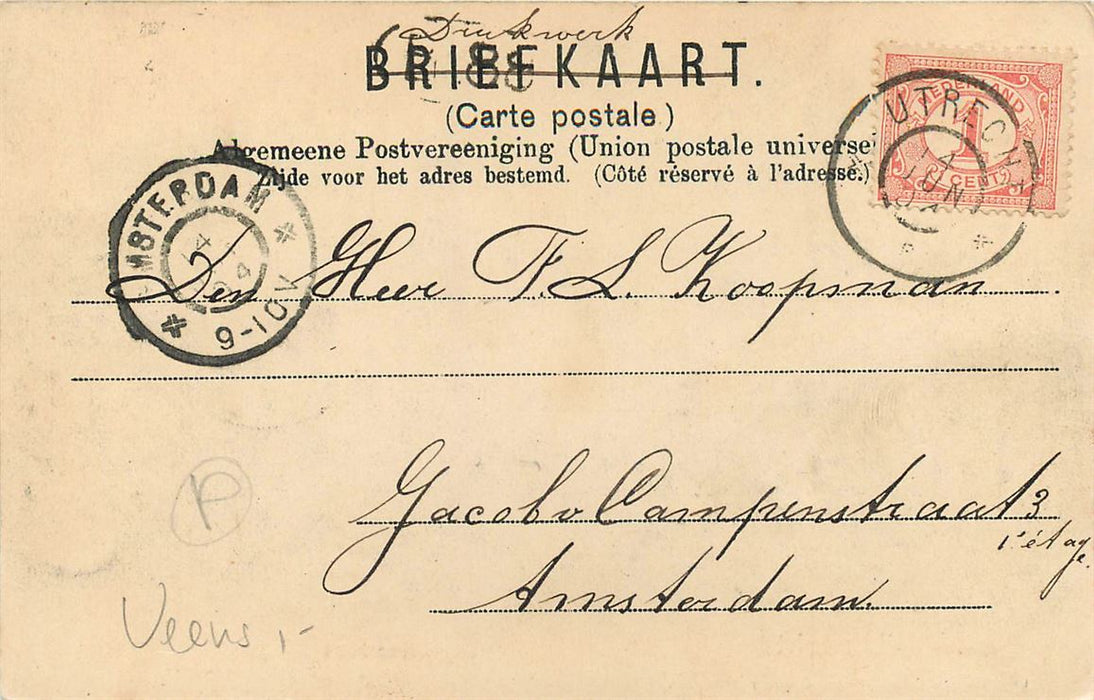 Drukwerk
88
BRIEFKAART.
(Carte postale)
Algemeene Postvereeniging (Union postale universe
Zijde voor het adres bestemd. (Côté réservé à l'adresse.)
NEDERLAND
1
CENT
UTRECHT
14
JUN
AMSTERDAM
4
9-10V
Den Heer F. L. Koopman
Jacob v Campenstraat 3
1e étage
Amsterdam.
P
Veens,-